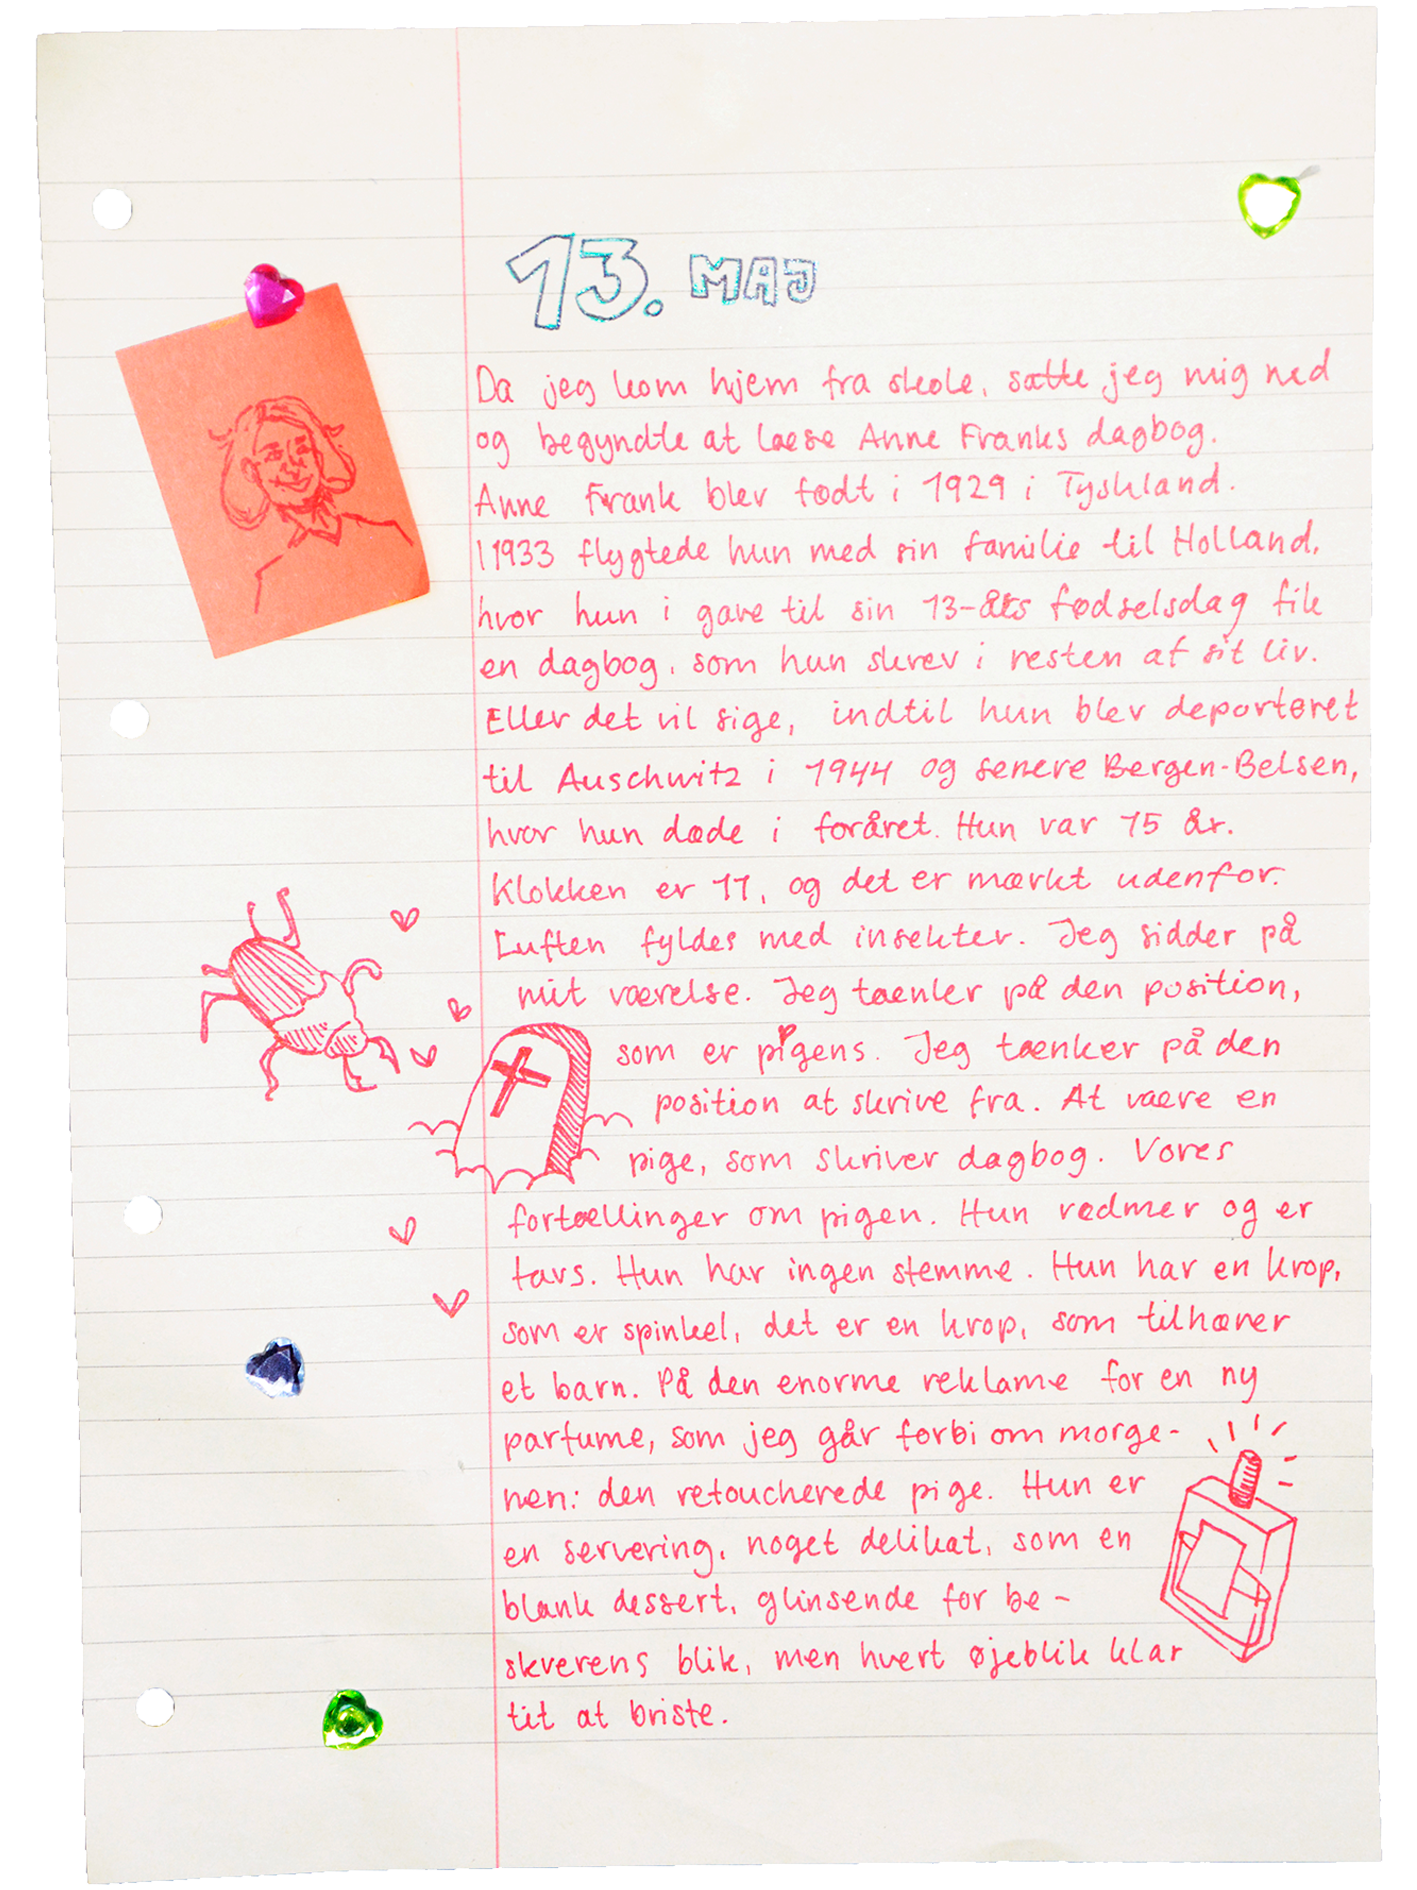 13. MAJ
Da jeg kom hjem fra skole, satte jeg mig ned
og begyndte at læse Anne Franks dagbog.
Anne Frank blev født i 1929 i Tyskland.
I 1933 flygtede hun med sin familie til Holland,
hvor hun i gave til sin 13-års fødselsdag fik
en dagbog, som hun skrev i resten af sit liv.
Eller det vil sige, indtil hun blev deporteret
til Auschwitz i 1944 og senere Bergen-Belsen,
hvor hun døde i foråret. Hun var 15 år.
Klokken er 11, og det er mørkt udenfor.
Luften fyldes med insekter. Jeg sidder på
mit værelse. Jeg tænker på den position,
som er pigens. Jeg tænker på den
position at skrive fra. At være en
pige, som skriver dagbog. Vores
fortællinger om pigen. Hun rødmer og er
tavs. Hun har ingen stemme. Hun har en krop,
som er spinkel, det er en krop, som tilhører
et barn. På den enorme reklame for en ny
parfume, som jeg går forbi om morge-
nen: den retoucherede pige. Hun er
en servering, noget delikat, som en
blank dessert, glinsende for be-
skuerens blik, men hvert øjeblik klar
til at briste.